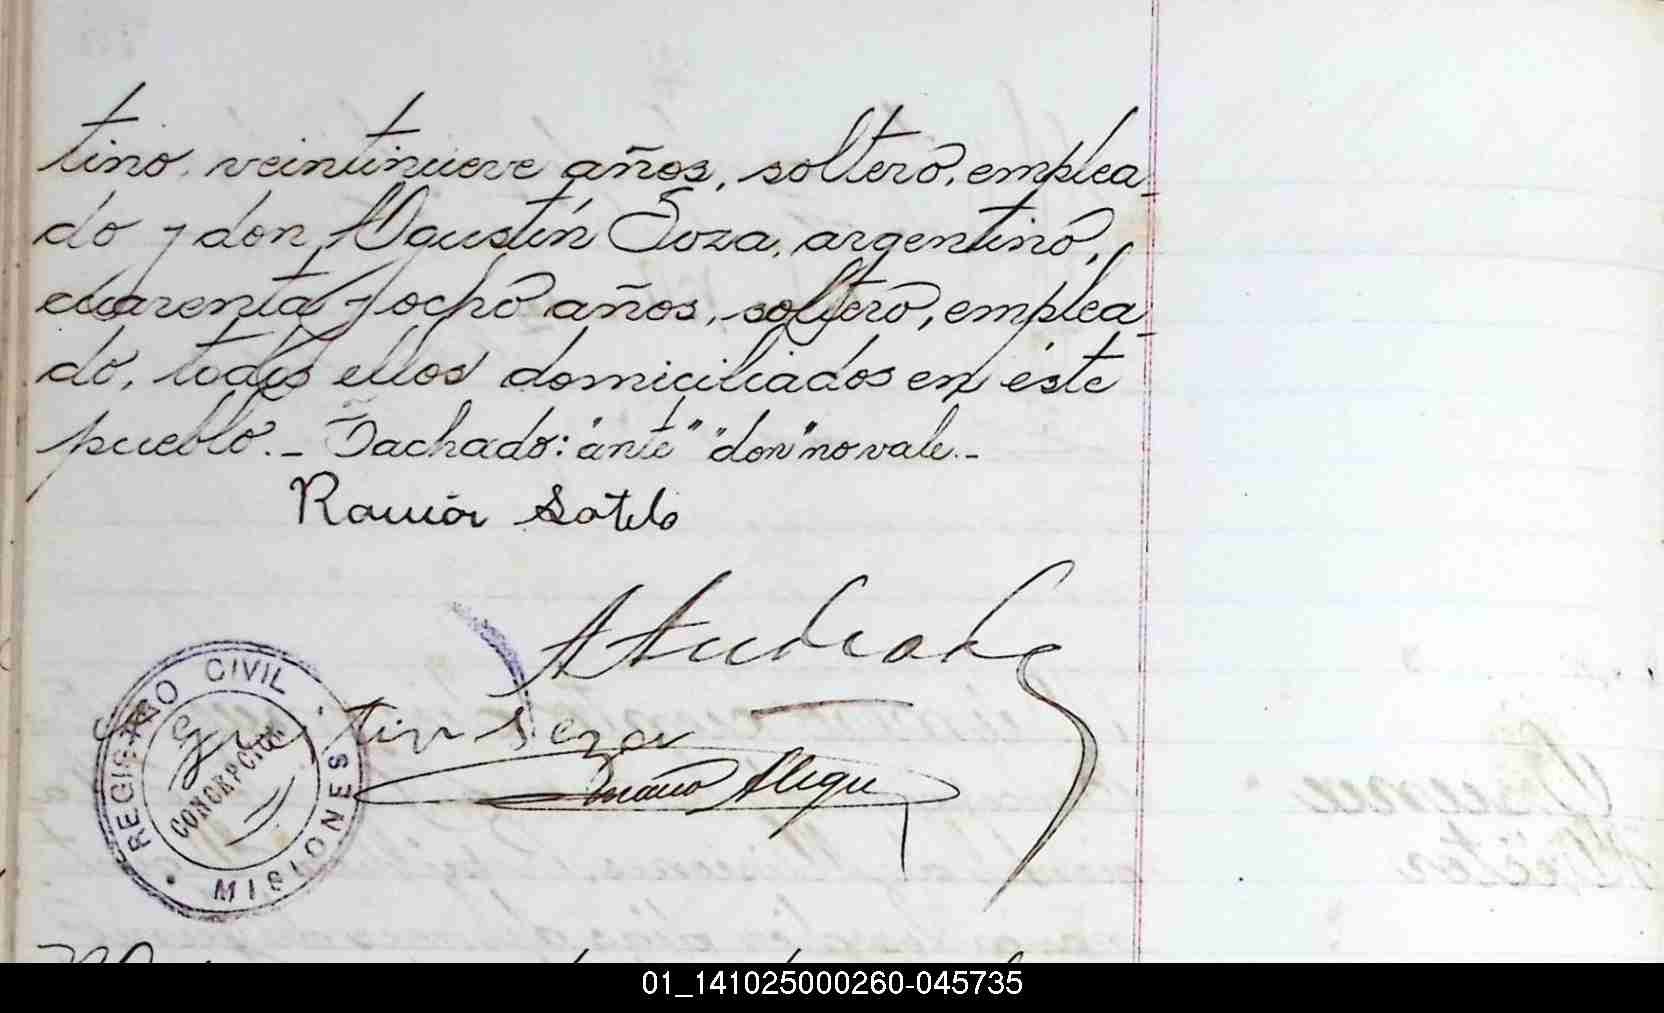 tino, veintinueve años, soltero, emplea-
do y don Agustín Soza, argentino,
cuarenta y ocho años, soltero, emplea-
do, todos ellos domiciliados en éste
pueblo.- Tachado: "ante" "don" no vale.-
Ramón Sotelo
A Andrade
Agustin Soza
REGISTRO CIVIL
CONCEPCION
MISIONES
01_141025000260-045735